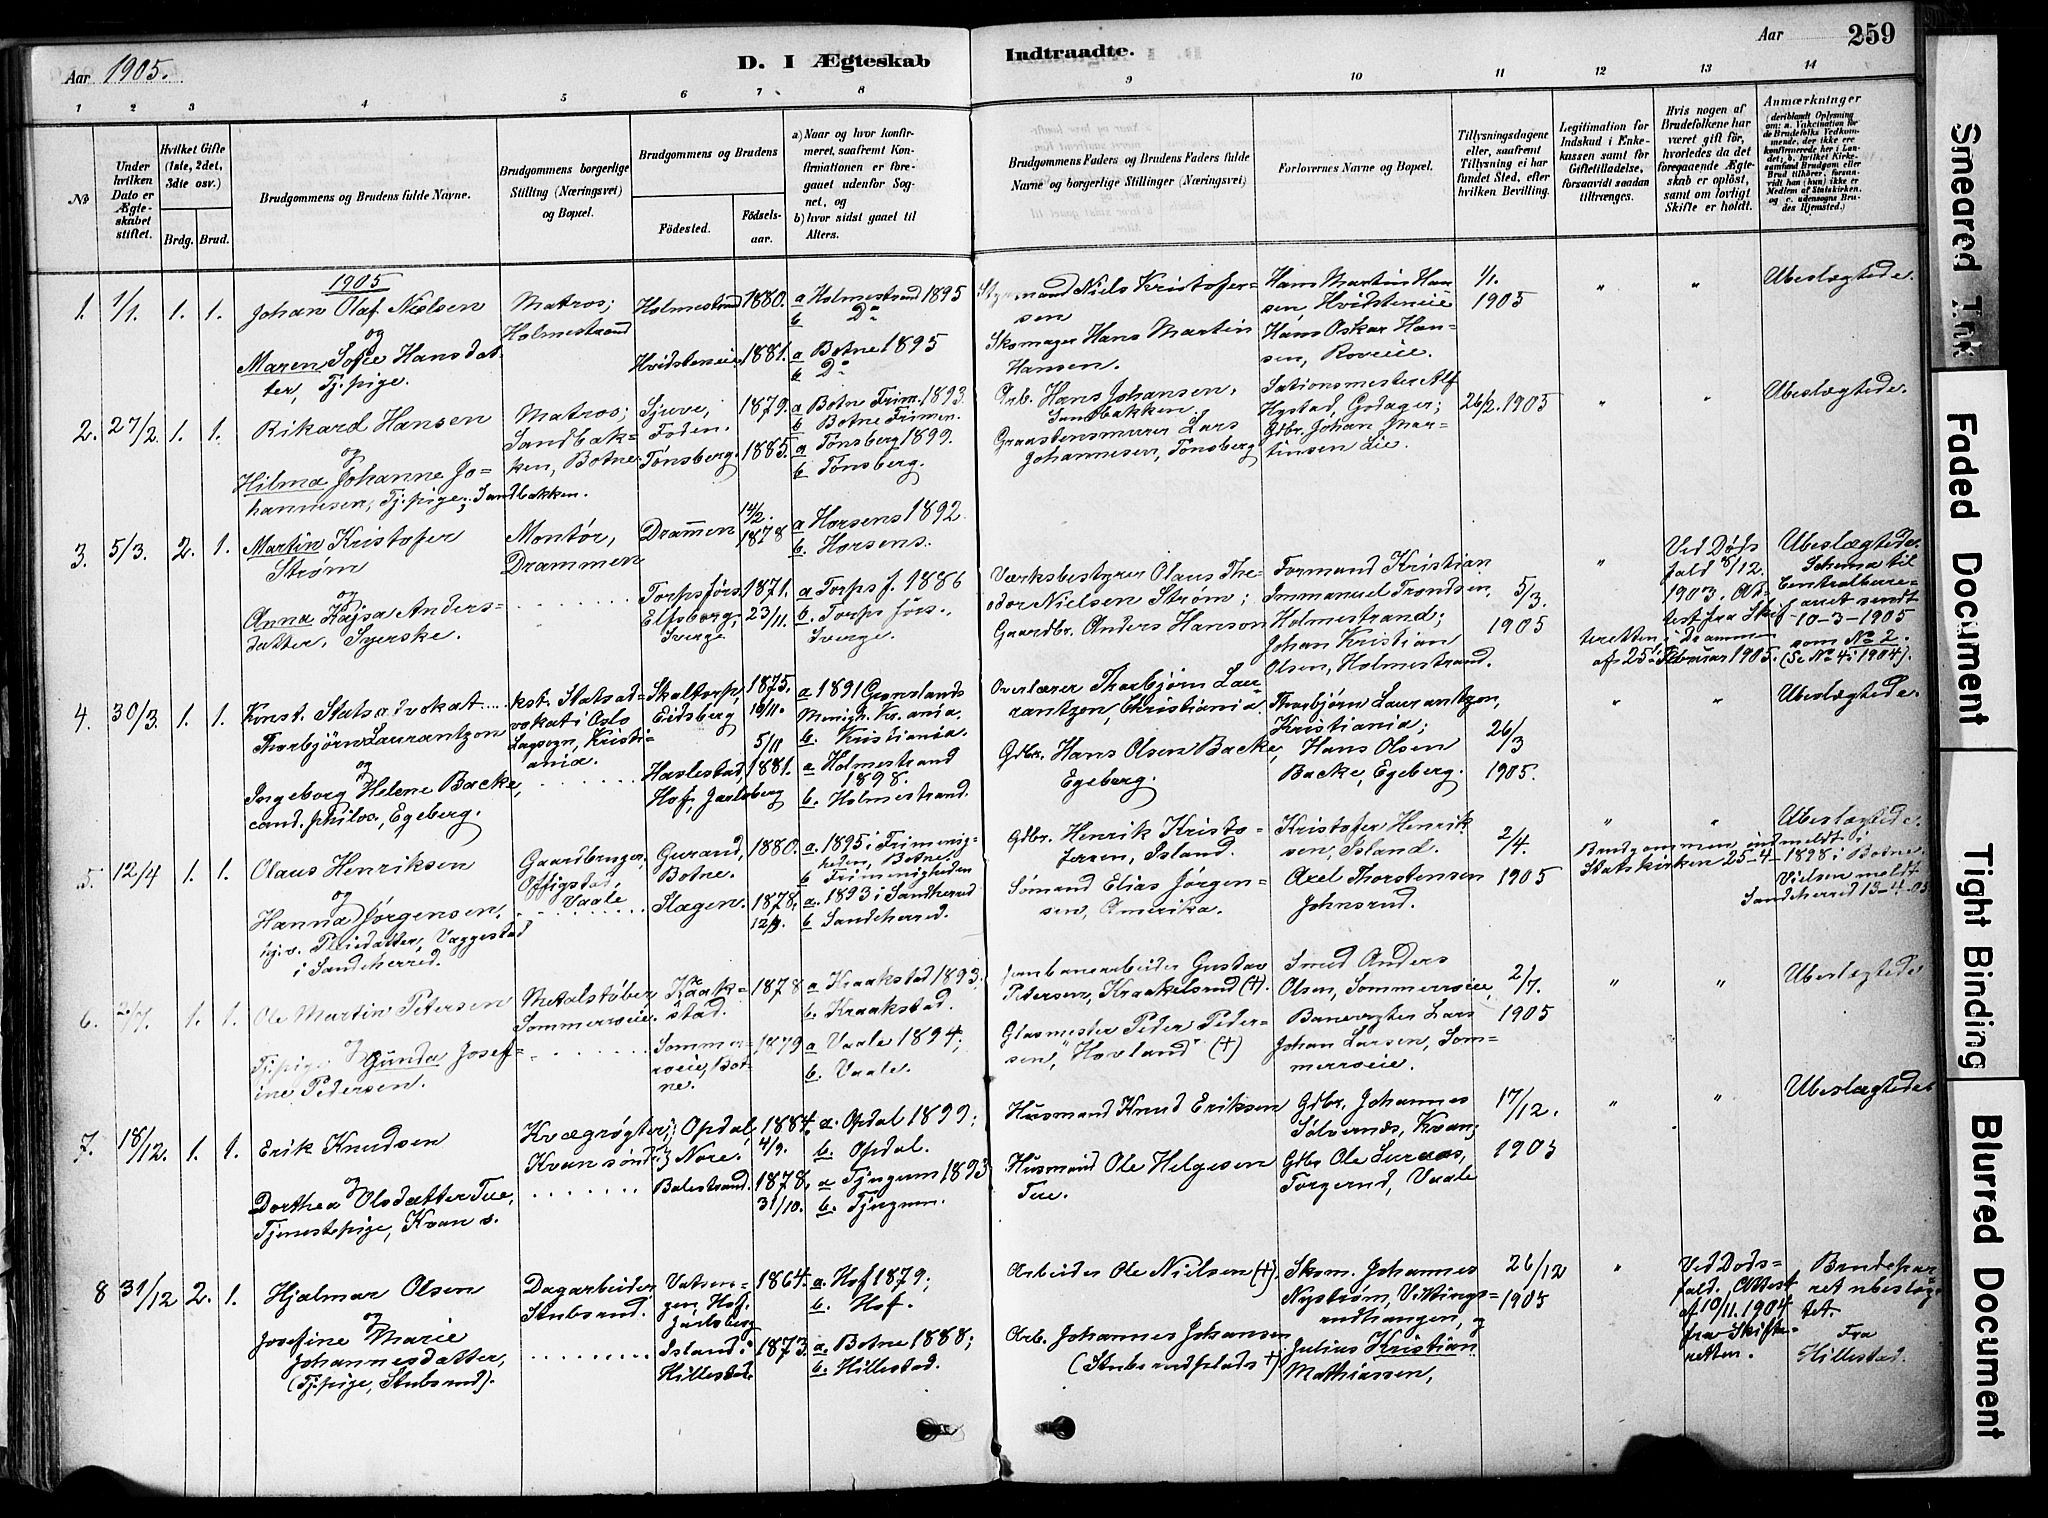 Aar 1905.
D. I Ægteskab Indtraadte.
Aar
259
1 2 3 4 5 6 7 8 9 10 11 12 13 14
No
Under hvilken Dato er Ægteskabet stiftet.
Hvilket Gifte (1ste, 2det, 3die osv.)
Brdg. Brud.
Brudgommens og Brudens fulde Navne.
Brudgommens borgerlige Stilling (Næringsvei) og Bopæl.
Brudgommens og Brudens
Födested.
Födselsaar.
a) Naar og hvor konfirmeret, saafremt Konfirmationen er foregaaet udenfor Sognet, og
b) hvor sidst gaaet til Alters.
Brudgommens Faders og Brudens Faders fulde Navne og borgerlige Stillinger (Næringsvei)
Forlovernes Navne og Bopæl.
Tillysningsdagene eller, saafremt Tillysning ei har fundet Sted, efter hvilken Bevilling.
Legitimation for Indskud i Enkekassen samt for Giftetilladelse, forsaavidt saadan tiltrænges.
Hvis nogen af Brudefolkene har været gift før, hvorledes da det foregaaende Ægteskab er oplöst, samt om lovligt Skifte er holdt.
Anmærkninger (deriblandt Oplysning om: a. Vakcination for de Brudefolks Vedkommende, der ikke ere konfirmerede her i Landet; b. hvilket Kirkesamfund Brudgom eller Brud tilhörer, forsaavidt han (hun) ikke er Medlem af Statskirken, og c. udensogns Brudes Hjemsted.)
1905
1. 1/1. 1. 1. Johan Olaf Nielsen
og
Maren Sofie Hansdatter, Tj.pige.
Matros; Holmestrand
Holmestrand 1880. a Holmestrand 1895
b Do
Hvidsteneie. 1881. a Botne 1895
b Do
Styrmand Niels Kristofersen
Skomager Hans Martin Hansen.
Hans Martin Hansen, Hvidsteneie
Hans Oskar Hansen, Roveie.
1/1. 1905
" "
Ubeslægtede.
2. 27/2. 1. 1. Rikard Hansen
og
Hilma Johanne Johannesen, Tj.pige, Sandbakken.
Matros; Sandbakken, Botne.
Foden. 1879. a Botne Frim. 1893.
b Botne Frimen.
Tønsberg. 1885. a Tønsberg 1899.
b Tønsberg.
Arb. Hans Johansen, Sandbakken.
Lars Johannesen, Tønsberg
Alf Hystad, Godager;
Gdbr. Johan Martinsen Lie.
26/2. 1905
" "
Ubeslægtede.
3. 5/3. 2. 1. Martin Kristofer Strøm
og
Anna Kajsa Andersdatter, Syerske.
Montør, Drammen
Drammen 14/2. 1878 a Horsens 1892
b. Horsens.
Torpsførs. Elfsborg, Sverge 1871. 23/11. a Torpsf. 1886
b. Torps förs. Sverge.
Værksbestyrer Olaus Theodor Nielsen Strøm;
Gaardbr. Anders Hanson
Formand Kristian Immanuel Trondsen, Holmestrand;
Johan Kristian Olsen, Holmestrand.
5/3. 1905
"
Ved Dødsfald 8/12. 1903. Attest fra Skifteretten i Drammen af 25. Februar 1905.
Ubeslægtede.
Schema til Centralbureauet sendt 10-3-1905 som No 2.
(Se No 4 i 1904).
4. 30/3. 1. 1. Konst. Statsadvokat
Thorbjørn Laurantzon
og
Ingeborg Helene Backe, cand. philos., Egeberg.
kst. Statsadvokat i Oslo Lagsogn, Kristiania.
Skaltorp, Eidsberg 1875. 19/11. a 1891 Grønlands Menigh. Kr.ania.
b. Kristiania.
Havlestad, Hof, Jarlsberg 5/11 1881. a. Holmestrand 1898.
b. Holmestrand.
Overlærer Thorbjørn Laurantzon, Christiania.
Gdbr. Hans Olsen Backe, Egeberg.
Thorbjørn Laurantzon, Kristiania;
Hans Olsen Backe, Egeberg.
26/3 1905.
" "
Ubeslægtede.
5. 12/4 1. 1. Olaus Henriksen
og
Hanna Jørgensen, Pleiedatter, Vaggestad i Sandeherred.
Gaardbruger, Vaale
Gurand, Botne. 1880. a. 1895 i Frimenigheden, Botne.
b Frimenigheden
Slagen. 1878. 12/9. a. 1893 i Sandherred
b Sandeherred.
Gdbr. Henrik Kristofersen, Island.
Sømand Elias Jørgensen, Amerika.
Kristofer Henriksen, Island.
Axel Thorstensen Johnsrud.
2/4. 1905
" "
Brudgommen indmeldt i Statskirken 25-4-1898 i Botne.
Ubeslægtede.
Vielsen meldt Sandeherred 13-4-05
6. 2/7. 1. 1. Ole Martin Petersen
og
Tj.pige Gunda Josefine Pedersen.
Metalstøber Sommerroeie.
Kraakstad. 1878 a Kraakstad 1893;
b. Kraakstad.
Sommerroeie, Botne. 1879 a Vaale 1894;
b. Vaale.
Jernbanearbeider Gustav Petersen, Kraakelsrud (+).
Glasmester Peder Pedersen, "Hovland" (+)
Smed Anders Olsen, Sommerroeie,
Banevogter Lars Johan Larsen, Sommerroeie.
2/7. 1905
" "
Ubeslægtede
7. 18/12. 1. 1. Erik Knudsen
og
Dorthea Olsdatter Tue, Tjenestepige, Kvan s.
Kvægrøgter, Kvansønde.
Opdal, Nore. 1884. 4/9. a. Opdal 1899;
b. Opdal.
Balestrand. 1878. 31/10. a Tjugum 1893
b. Tjugum.
Husmand Knud Eriksen
Husmand Ole Helgesen Tue.
Gdbr. Johannes Sølvernæs, Kvan;
Gdbr Ole Luraas, Torgerud, Vaale
17/12. 1905
" "
Ubeslægtede
8 31/12 2. 1. Hjalmar Olsen
og
Josefine Marie Johannesdatter, (Tj.pige, Stubsrud).
Dagarbeider, Stubsrud.
Hof, Jarlsberg 1864. a. Hof 1879;
b. Hof.
Island i Hillestad. 1873. a. Botne 1888;
b. Hillestad.
Arbeider Ole Nielsen (+).
Arb. Johannes Johansen (Stubsrudplads +)
Skom. Johannes Nystrøm, Vittingsrudhangen, og
Julius Kristian Mathiassen,
26/12 1905
"
Ved Dødsfald. Attest af 10/11. 1904 fra Skifteretten.
Brudeparret ubeslægtet.
Fra Hillestad.
Smeared Ink
Faded Document
Tight Binding
Blurred Document